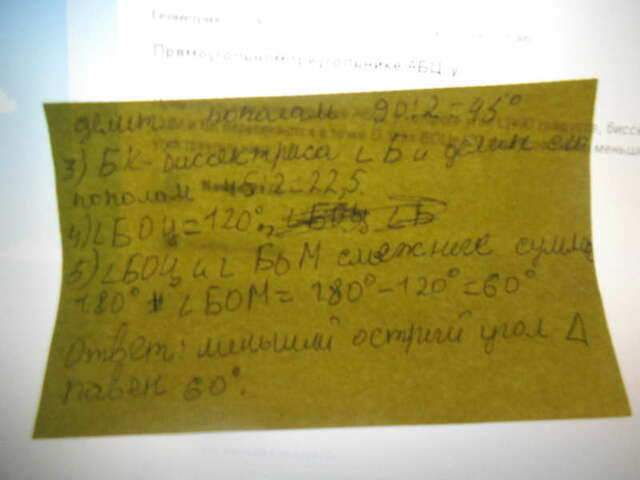 Прямоугольном треугольнике АБЦ у
делит пополам 90:2=45°
3) БК- биссектриса ∠Б и делит его
пополам 45:2=22,5.
4) ∠БОЦ=120°, ∠БОЦ ∠Б
5) ∠БОЦ и ∠ БОМ смежные сумма
180° ∠БОМ= 180°-120°=60°
Ответ: меньший острый угол Δ
равен 60°.